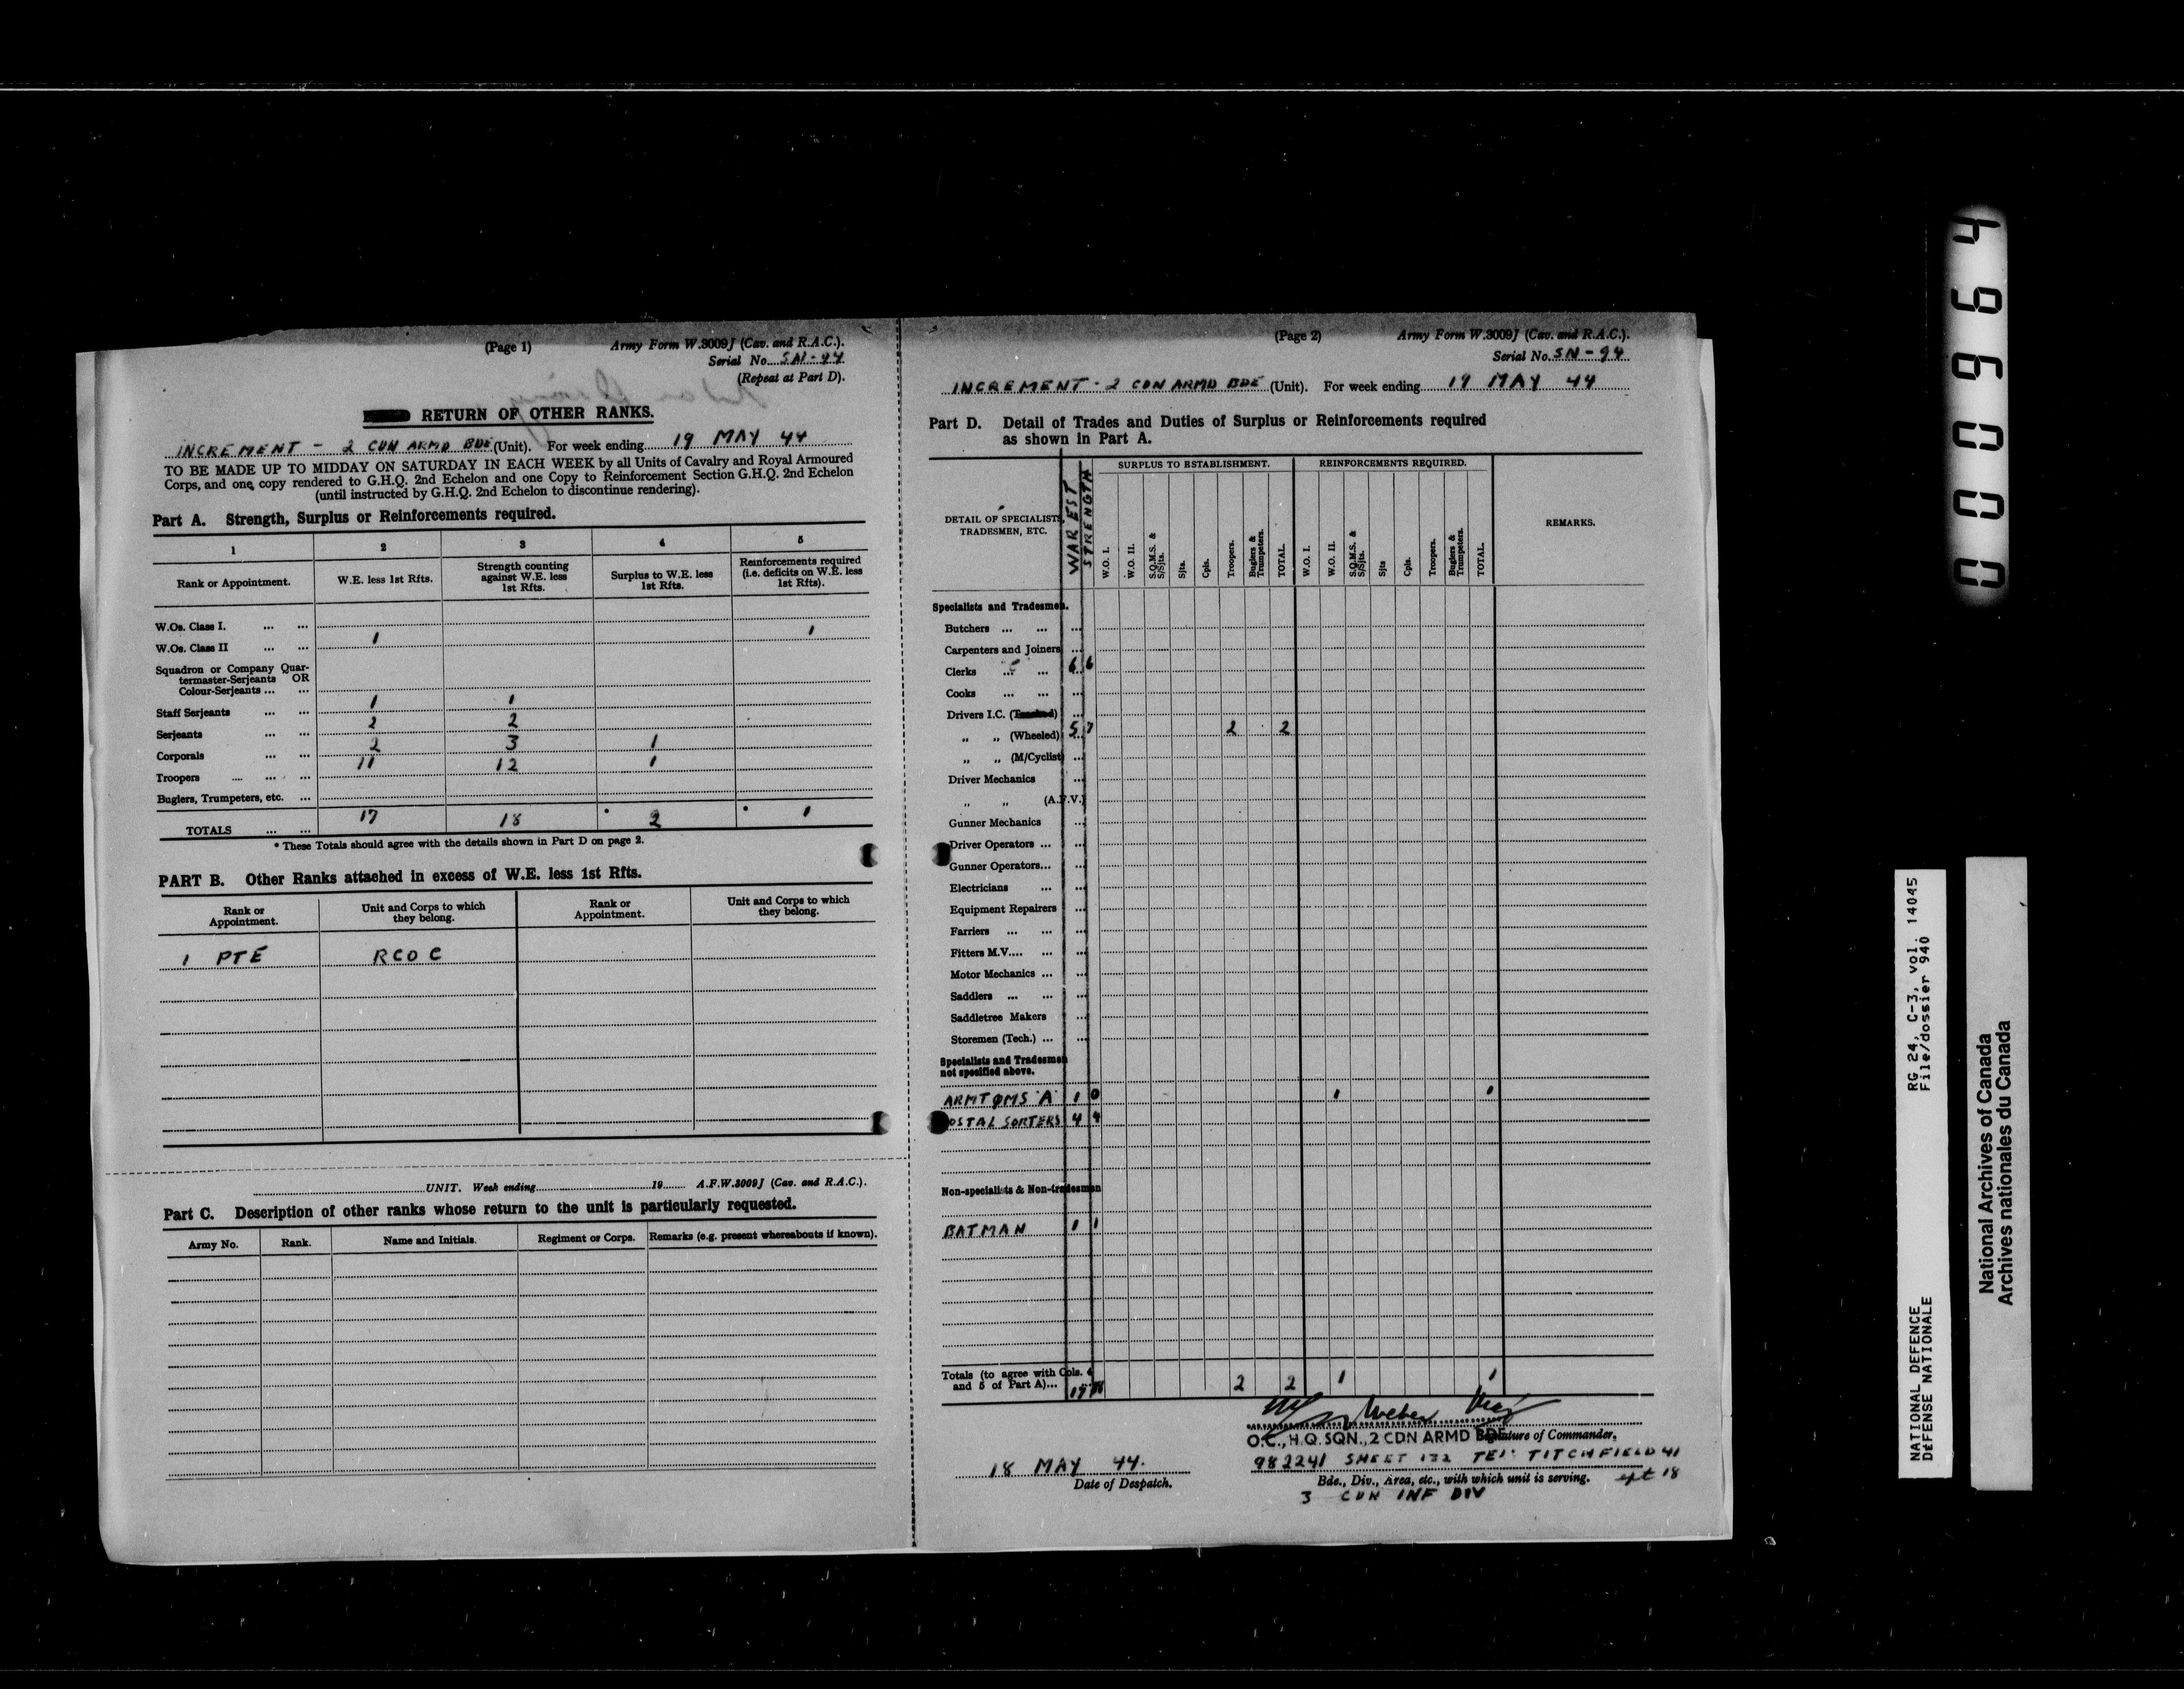 (Page 1)
Army Form W.3009J (Cav. and R.A.C.).
Serial No. SN-94
(Repeat at Part D).
RETURN OF OTHER RANKS.
INCREMENT - 2 CDN ARMD BDE (Unit). For week ending 19 MAY 44
TO BE MADE UP TO MIDDAY ON SATURDAY IN EACH WEEK by all Units of Cavalry and Royal Armoured
Corps, and one copy rendered to G.H.Q. 2nd Echelon and one Copy to Reinforcement Section G.H.Q. 2nd Echelon
(until instructed by G.H.Q. 2nd Echelon to discontinue rendering).
Part A. Strength, Surplus or Reinforcements required.
1 2 3 4 5
Rank or Appointment. W.E. less 1st Rfts. Strength counting against W.E. less 1st Rfts. Surplus to W.E. less 1st Rfts. Reinforcements required (i.e. deficits on W.E. less 1st Rfts).
W.Os. Class I. ... ...
W.Os. Class II ... ... 1 1
Squadron or Company Quar-
termaster-Serjeants OR
Colour-Serjeants ... ...
Staff Serjeants ... ... 1 1
Serjeants ... ... 2 2
Corporals ... ... 2 3 1
Troopers ... ... ... 11 12 1
Buglers, Trumpeters, etc. ...
TOTALS ... ... 17 18 * 2 * 1
* These Totals should agree with the details shown in Part D on page 2.
PART B. Other Ranks attached in excess of W.E. less 1st Rfts.
Rank or Appointment. Unit and Corps to which they belong. Rank or Appointment. Unit and Corps to which they belong.
1 PTE RCOC
UNIT. Week ending 19 A.F.W.3009J (Cav. and R.A.C.).
Part C. Description of other ranks whose return to the unit is particularly requested.
Army No. Rank. Name and Initials. Regiment or Corps. Remarks (e.g. present whereabouts if known).
(Page 2)
Army Form W.3009J (Cav. and R.A.C.).
Serial No. SN-94
INCREMENT - 2 CDN ARMD BDE (Unit). For week ending 19 MAY 44
Part D. Detail of Trades and Duties of Surplus or Reinforcements required
as shown in Part A.
DETAIL OF SPECIALISTS, TRADESMEN, ETC. WAR EST STRENGTH SURPLUS TO ESTABLISHMENT. REINFORCEMENTS REQUIRED. REMARKS.
W.O. I. W.O. II. S.Q.M.S. & S/Sjts. Sjts. Cpls. Troopers. Buglers & Trumpeters. TOTAL. W.O. I. W.O. II. S.Q.M.S. & S/Sjts. Sjts Cpls. Troopers. Buglers & Trumpeters. TOTAL.
Specialists and Tradesmen.
Butchers ... ... ...
Carpenters and Joiners ...
Clerks ... ... 6 6
Cooks ... ... ...
Drivers I.C. (Tracked) ...
" " (Wheeled) 5 7 2 2
" " (M/Cyclist) ...
Driver Mechanics ...
" " (A.F.V.)
Gunner Mechanics ...
Driver Operators ... ...
Gunner Operators... ...
Electricians ... ...
Equipment Repairers ...
Farriers ... ... ...
Fitters M.V.... ... ...
Motor Mechanics ... ...
Saddlers ... ... ...
Saddletree Makers ...
Storemen (Tech.) ... ...
Specialists and Tradesmen
not specified above.
ARMT QMS 'A' 1 0 1 1
POSTAL SORTERS 4 4
Non-specialists & Non-tradesmen
BATMAN 1 1
Totals (to agree with Cols. 4
and 5 of Part A)... 17 18 2 2 1 1
Weber Maj
O.C., H.Q. SQN., 2 CDN ARMD BDE
Signature of Commander.
982241 SHEET 132 TEL: TITCHFIELD 41
ext 18
18 MAY 44.
Date of Despatch.
Bde., Div., Area, etc., with which unit is serving.
3 CDN INF DIV
000964
RG 24, C-3, vol. 14045
File/dossier 940
NATIONAL DEFENCE
DÉFENSE NATIONALE
National Archives of Canada
Archives nationales du Canada